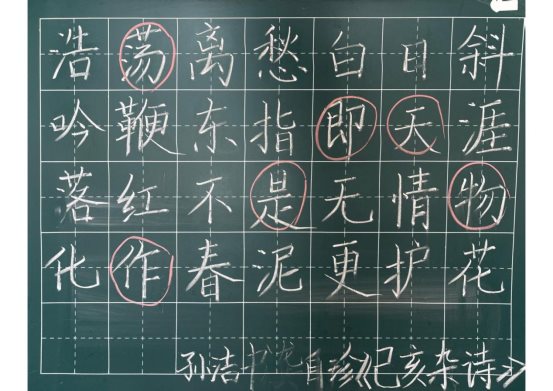 浩荡离愁白日斜
吟鞭东指即天涯
落红不是无情物
化作春泥更护花
孙洁书 自珍《己亥杂诗》